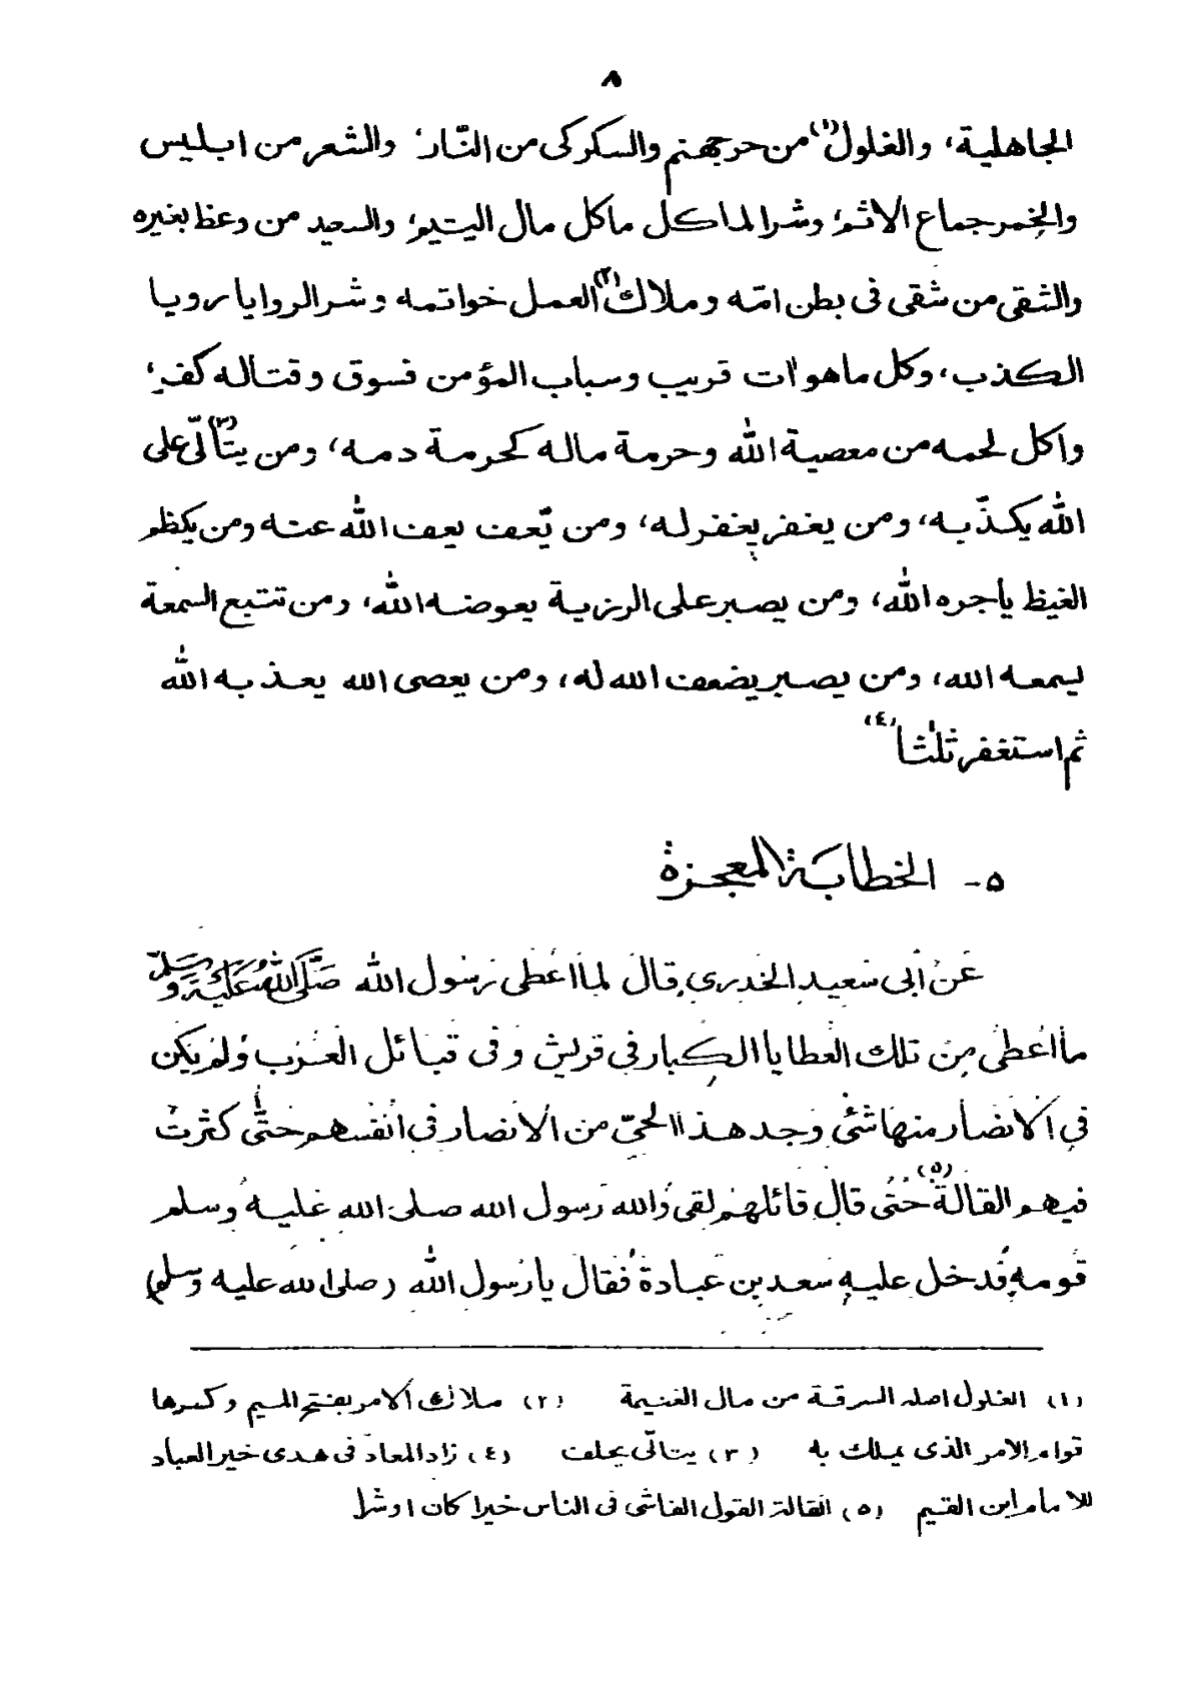 ٨
الجاهلية، والغلول(١) من حرجهنم والسكر كى من النّار، والشعر من ابليس
والخمر جماع الاثم، وشر الماكل ماكل مال اليتيم، والسعيد من وعظ بغيره
والشقى من شقى فى بطن امّه وملاك(٢) العمل خواتمه وشر الروايا رويا
الكذب، وكل ما هو اٰت قريب وسباب المؤمن فسوق وقتاله كفر،
واكل لحمه من معصية الله وحرمة ماله كحرمة دمه، ومن يتأ(٣)لّ على
الله يكذّبه، ومن يغفر يغفر له، ومن يّعف يعف الله عنه ومن يكظم
الغيظ يأجره الله، ومن يصبر على الرزية يعوضه الله، ومن تتبع السمعة
يسمعه الله، ومن يصبر يضعف الله له، ومن يعصى الله يعذبه الله
ثم استغفر ثلٰثا(٤)
٥- الخطابة المعجزة
عَنْ أبى سَعيدِ الخدرى قالَ لمّا أعْطى رَسُول الله صَلَّى اللهُ عَلَيْهِ وَسَلَّمَ
ما أعْطى مِنْ تلك العَطايا الكِبار في قريش وَفى قبائل العَرَب وَلم يكن
في الأنصَار منها شئى وَجد هذا الحيّ من الأنصار في أنفسهم حَتّٰى كثرت
فيهم القالَة(٥) حَتّى قالَ قائلهم لقى وَالله رَسول الله صلى الله عَليه وسلم
قومه فَدخل عليهِ سَعد بن عَبادة فَقالَ يا رَسول الله (صلى الله عليه وسلم)
(١) الغلول اصله السرقة من مال الغنيمة (٢) ملاك الامر بفتح الميم وكسرها
قوام الامر الذى يملك به (٣) يتالّى يحلف (٤) زاد المعاد فى هدى خير العباد
للامام ابن القيم (٥) القالة القول الفاشى فى الناس خيرا كان او شرا